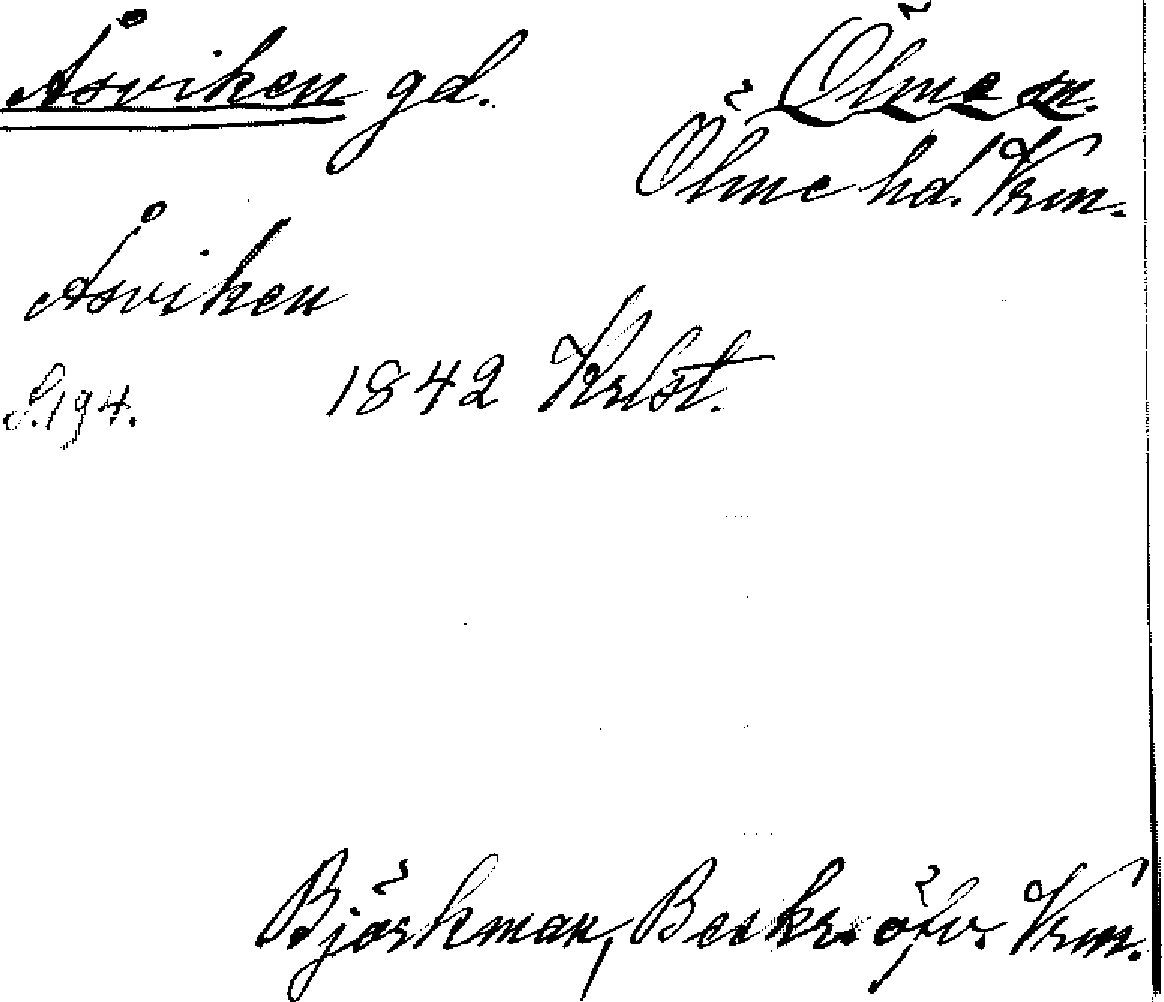 Åsviken gd.
Ölme sn.
Ölme hd. Vrm.
Åsviken
S. 194.
1842 Krlst.
Björkman, Beskr. öfv. Vrm.